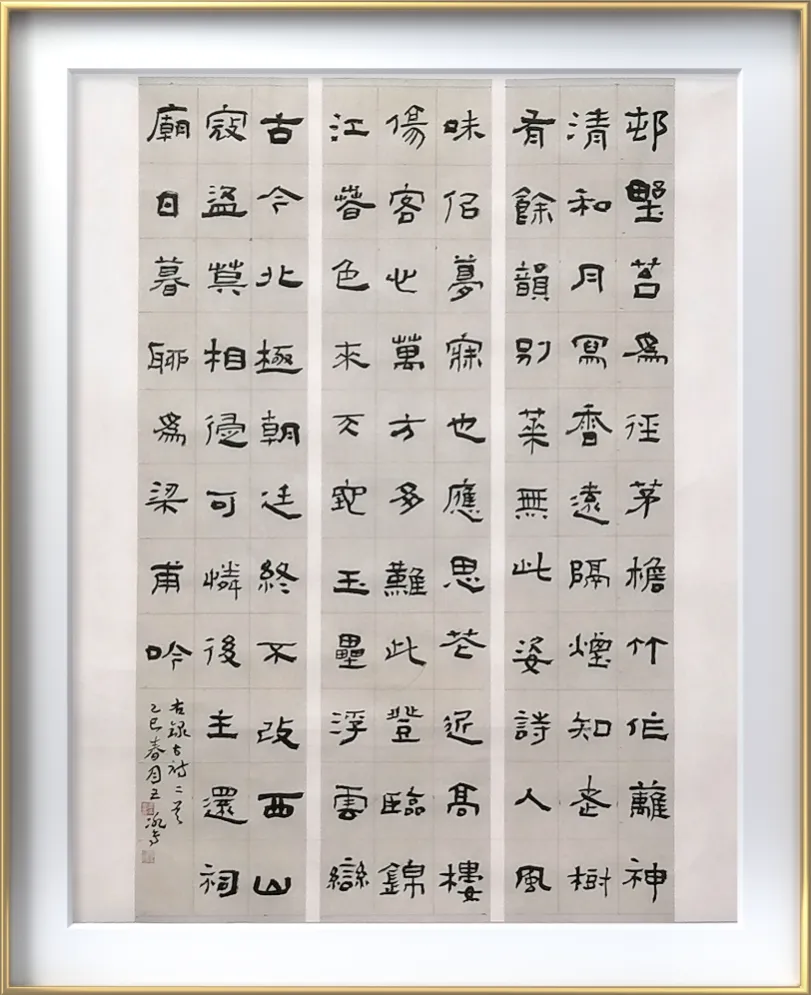 邨墅苔為徑茅檐竹作籬神
清和月寫香遠隔煙知老樹
有餘韻別華無此姿詩人風
味佀夢寐也應思花近高樓
傷客心萬方多難此登臨錦
江春色來天地玉壘浮雲變
古今北極朝廷終不改西山
寇盜莫相侵可憐後主還祠
廟日暮聊為梁甫吟
右錄古詩二首
乙巳春月